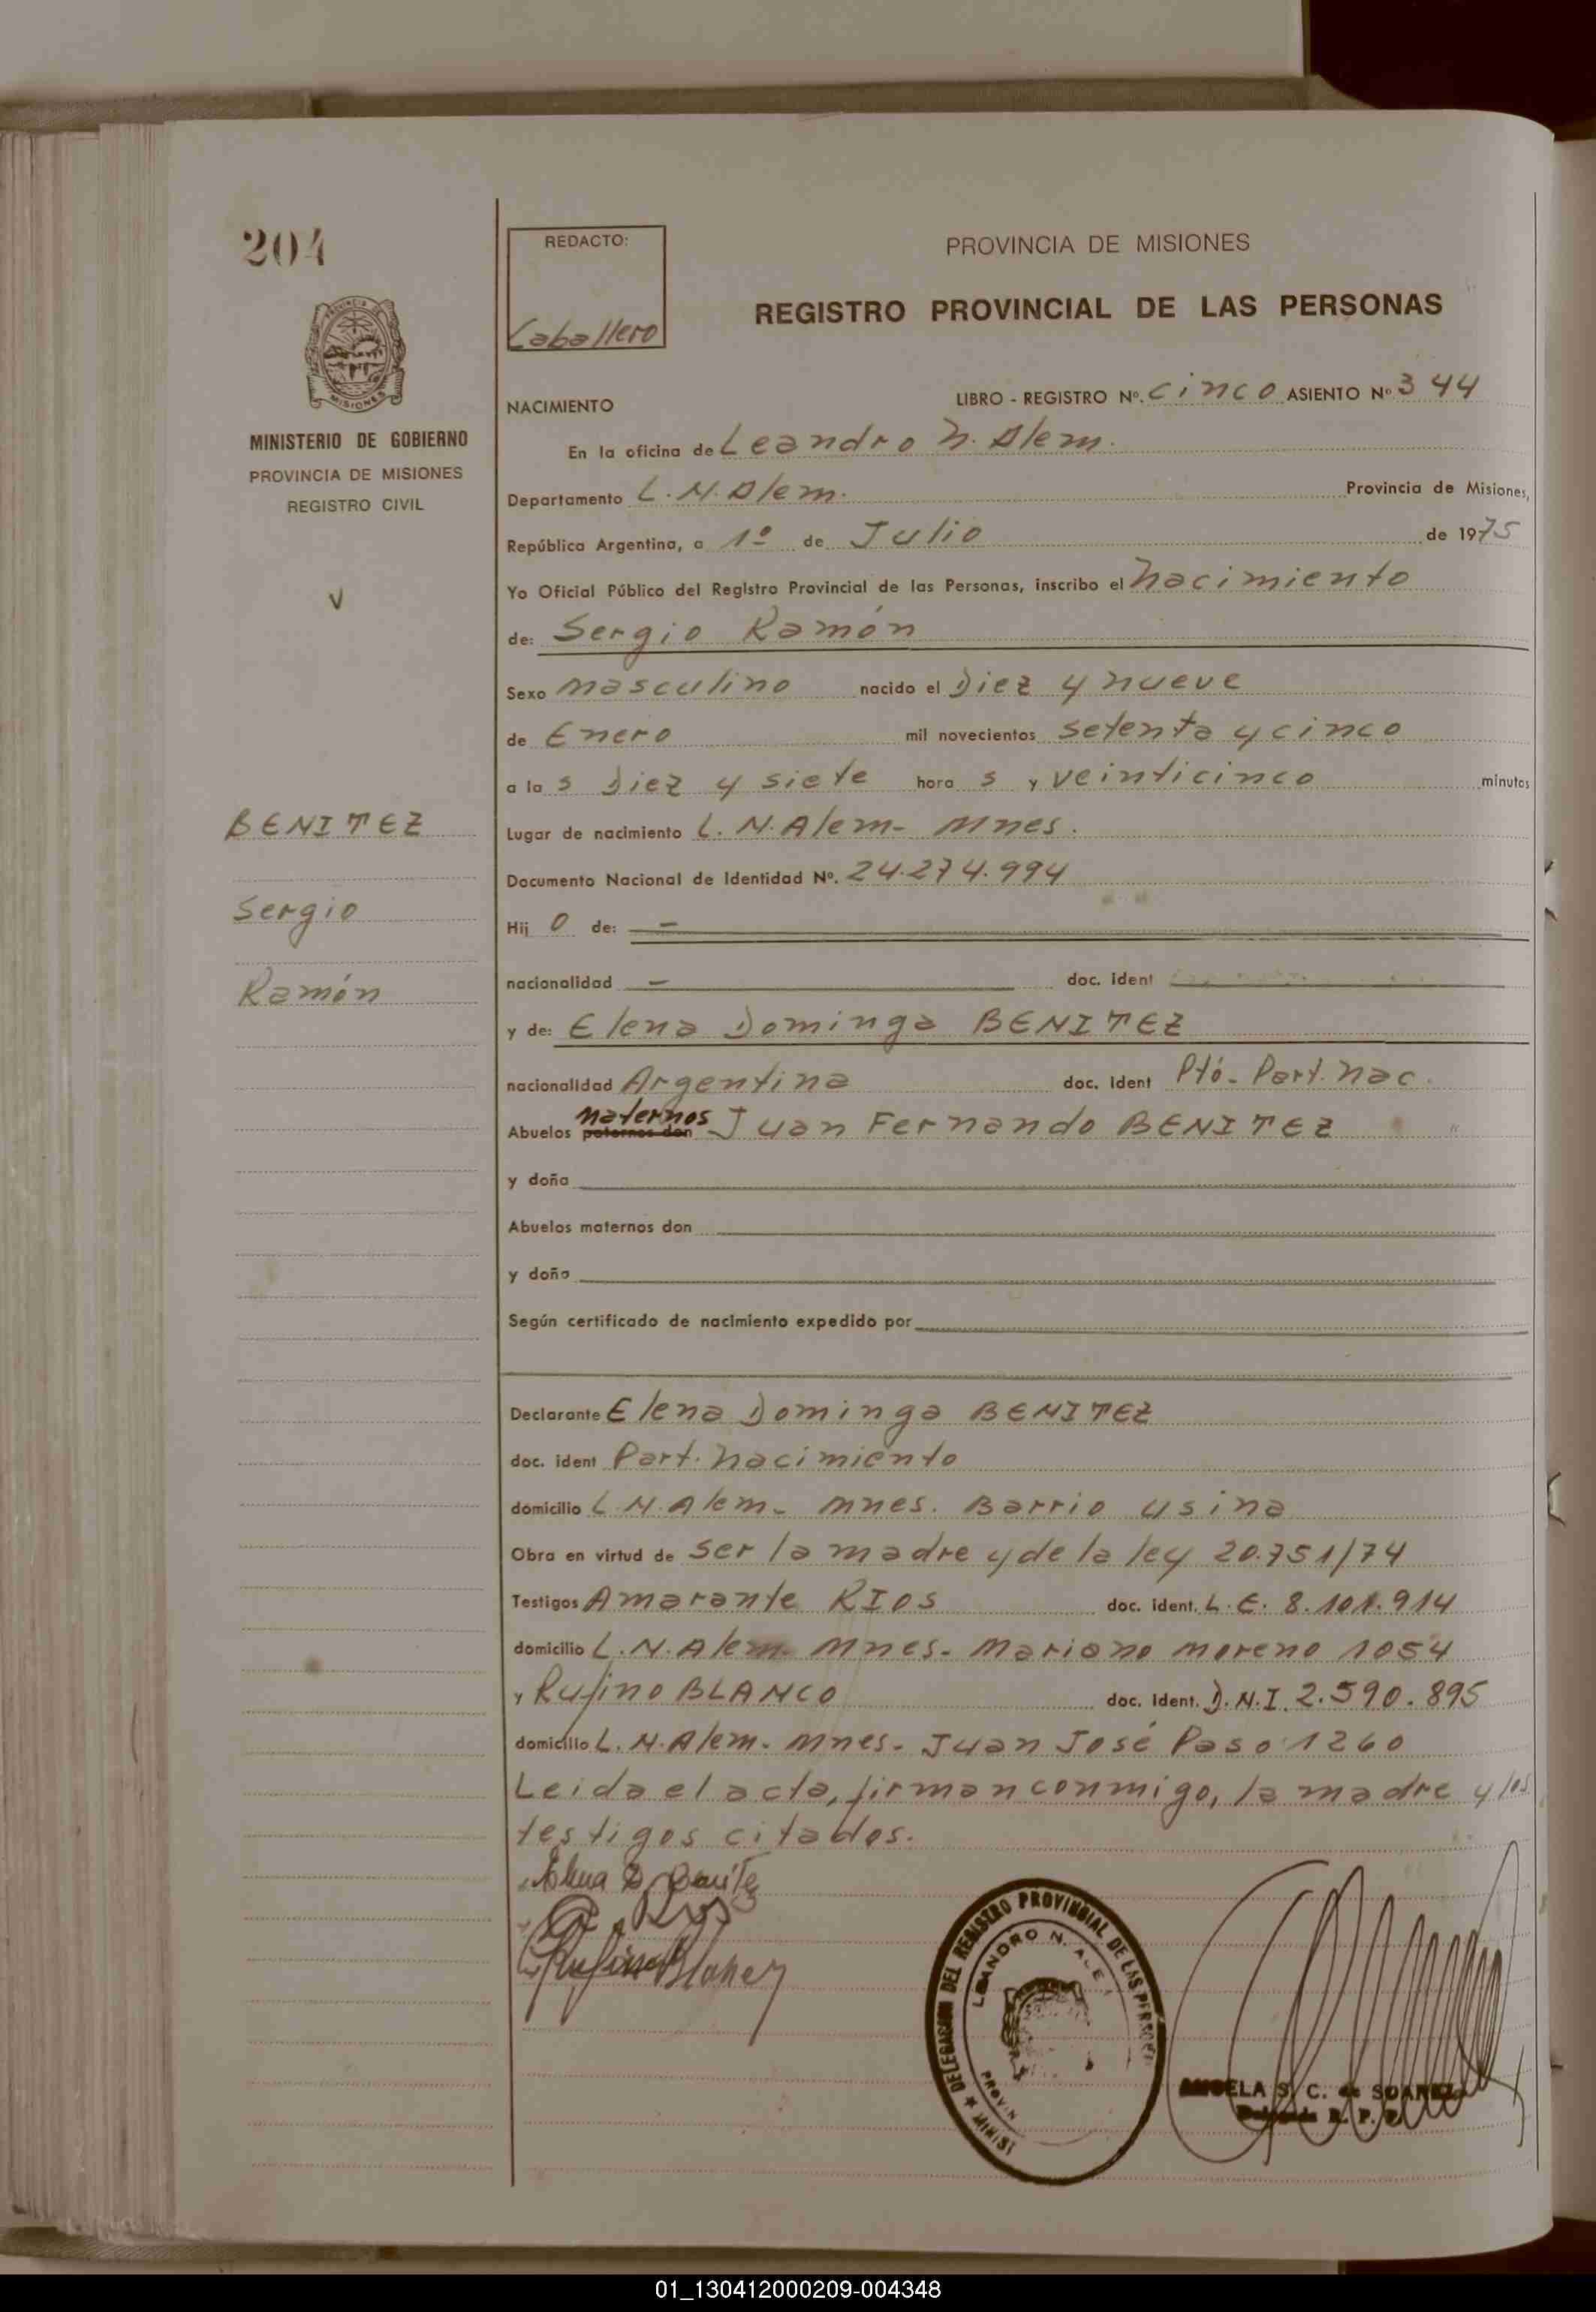 204
REDACTO:
Caballero
PROVINCIA DE MISIONES
REGISTRO PROVINCIAL DE LAS PERSONAS
PROVINCIA
MISIONES
MINISTERIO DE GOBIERNO
PROVINCIA DE MISIONES
REGISTRO CIVIL
V
BENITEZ
Sergio
Ramón
NACIMIENTO
LIBRO - REGISTRO Nº. cinco ASIENTO Nº 344
En la oficina de Leandro N. Alem.
Departamento L.N. Alem. Provincia de Misiones,
República Argentina, a 1º de Julio de 1975
Yo Oficial Público del Registro Provincial de las Personas, inscribo el nacimiento
de: Sergio Ramón
Sexo masculino nacido el Diez y nueve
de Enero mil novecientos setenta y cinco
a la s Diez y siete hora s y veinticinco minutos
Lugar de nacimiento L. N. Alem- Mnes.
Documento Nacional de Identidad Nº. 24.274.994
Hij o de: —
nacionalidad — doc. ident
y de: Elena Dominga BENITEZ
nacionalidad Argentina doc. ident Ptó- Part. nac.
maternos
Abuelos paternos don Juan Fernando BENITEZ
y doña
Abuelos maternos don
y doña
Según certificado de nacimiento expedido por
Declarante Elena Dominga BENITEZ
doc. ident Part. nacimiento
domicilio L.N. Alem- Mnes. Barrio usina
Obra en virtud de ser la madre y de la ley 20.751/74
Testigos Amarante RIOS doc. ident. L.E. 8.101.914
domicilio L.N. Alem- Mnes- Mariano Moreno 1054
y Rufino BLANCO doc. Ident. D.N.I. 2.590.895
domicilio L.N. Alem- Mnes- Juan José Paso 1260
Leida el acta, firman conmigo, la madre y los
testigos citados.
Elena D. Benitez
A Rios
Rufino Blanco
DELEGACION DEL REGISTRO PROVINCIAL DE LAS PERSON
LEANDRO N. ALE
PROVIN
MINIST
ANGELA S. C. de SUAREZ
Delegada R. P. P.
01_130412000209-004348